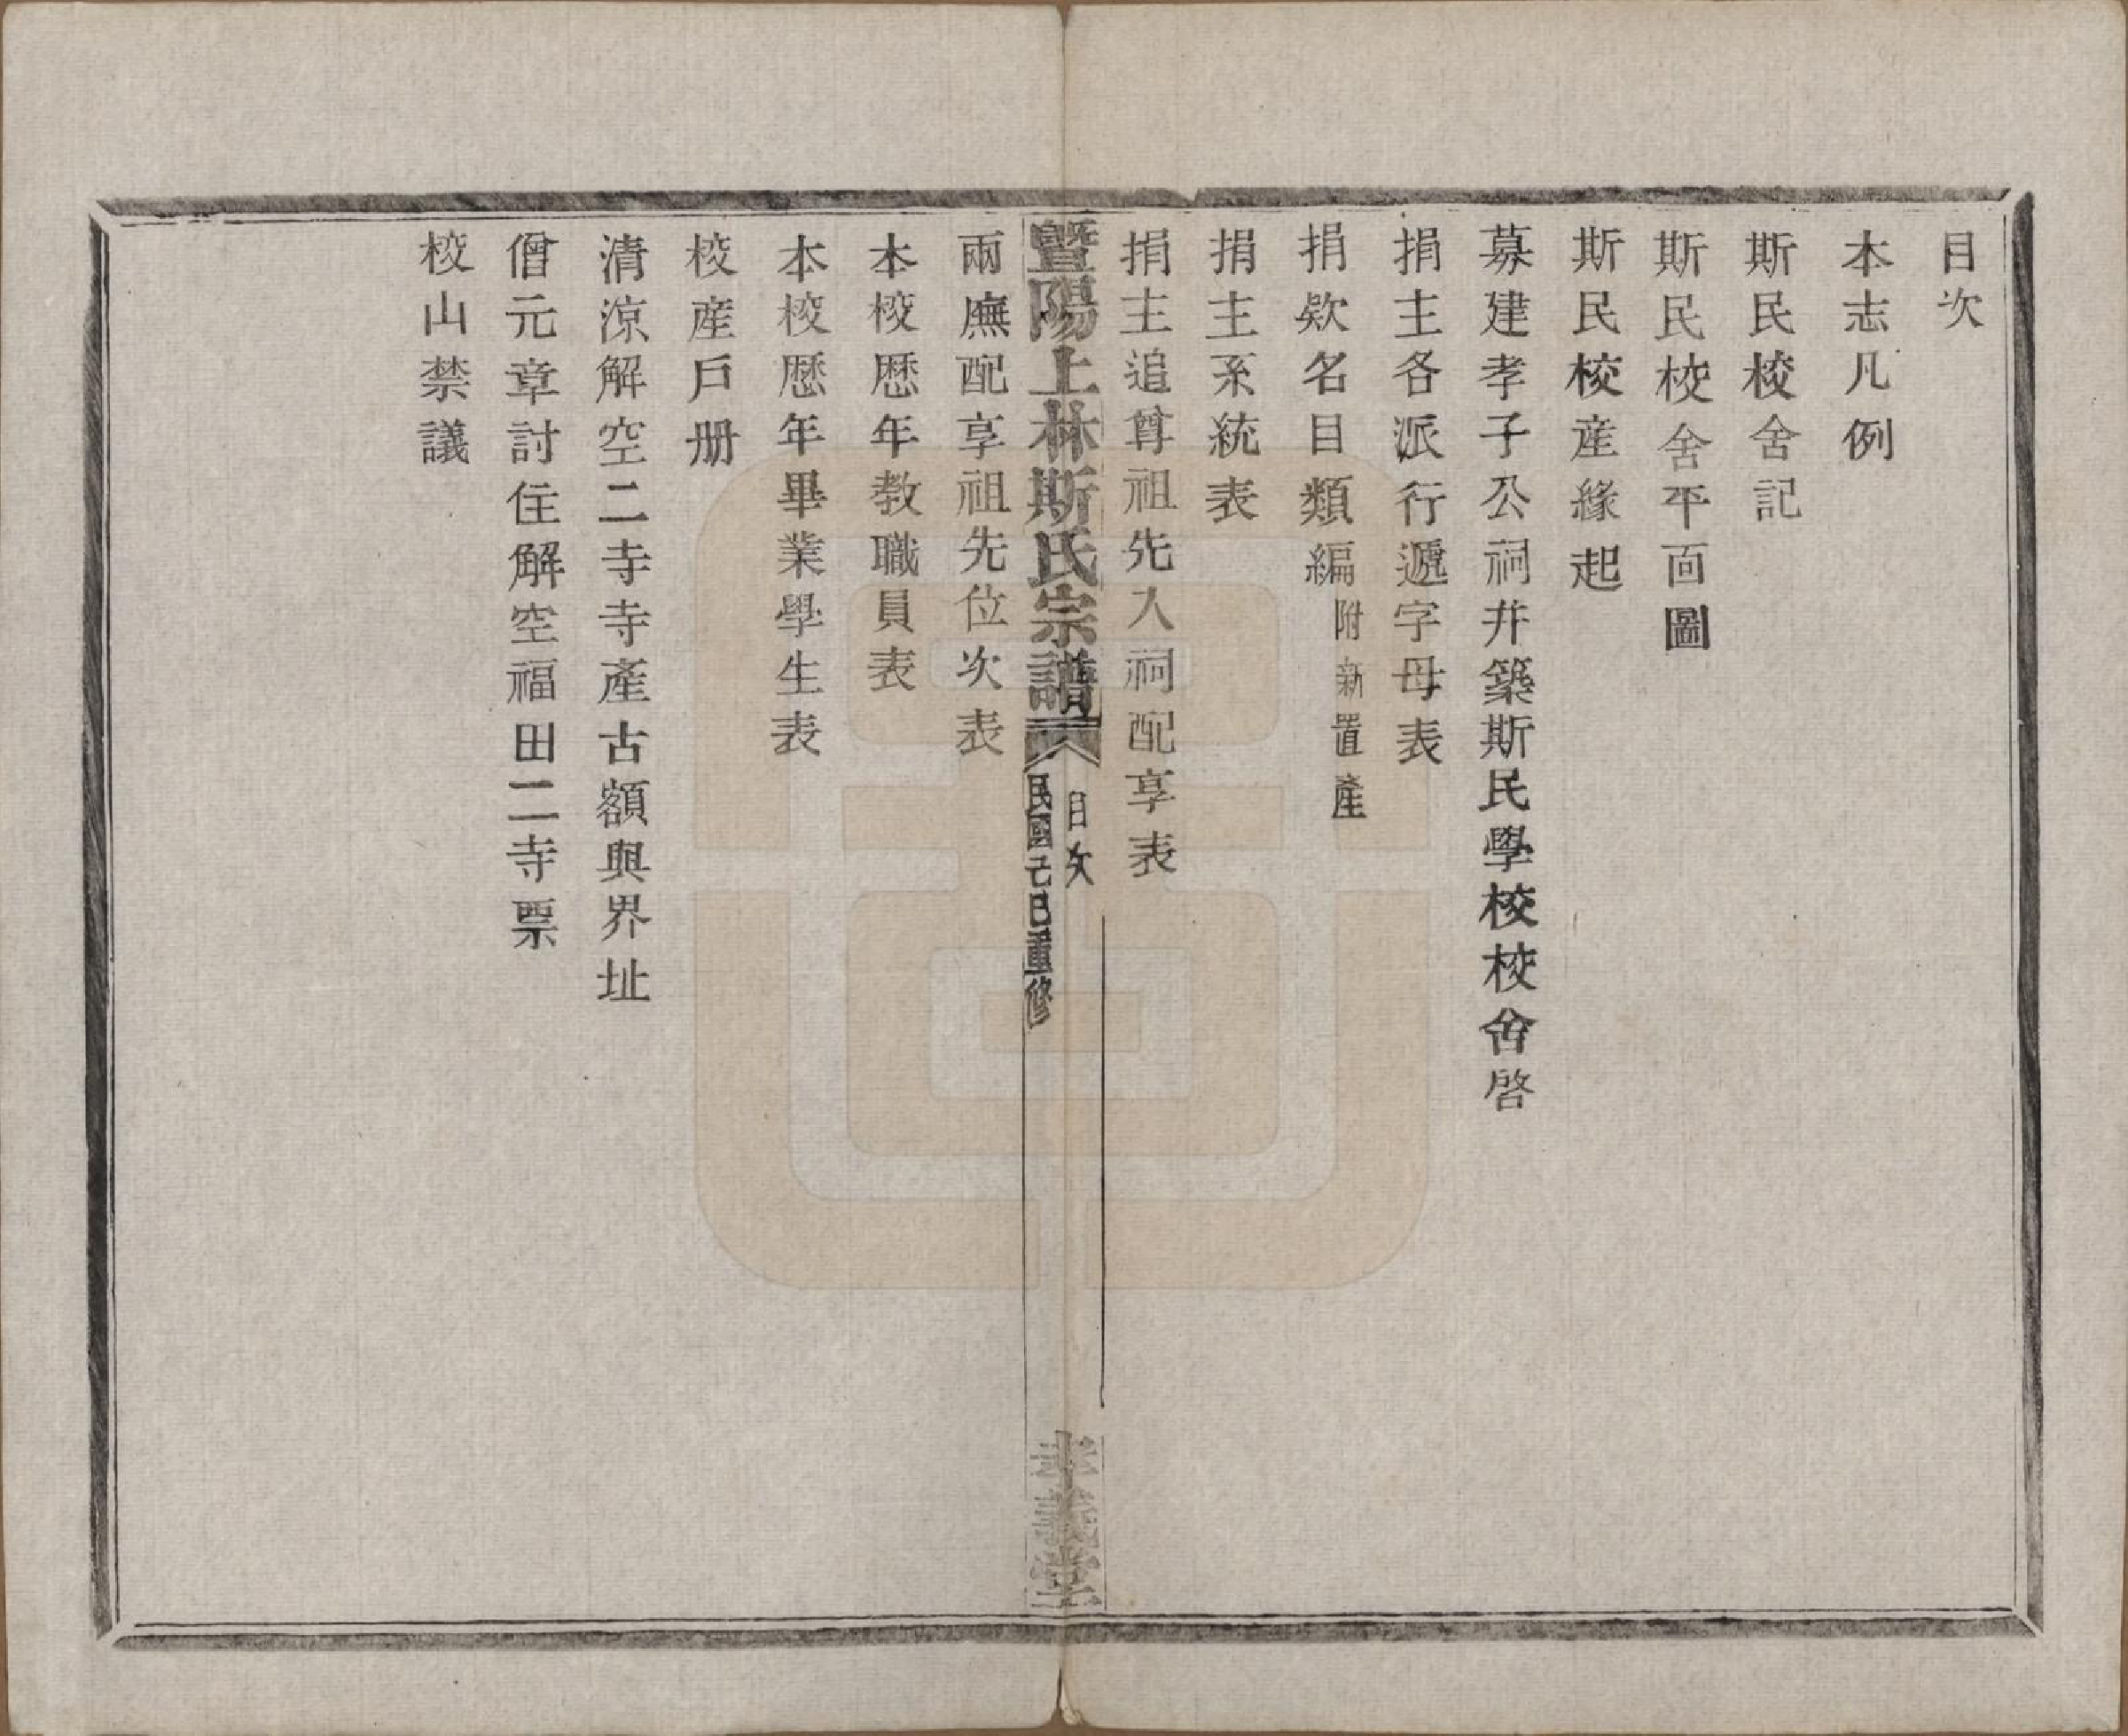 目次
本志凡例
斯民校舍記
斯民校舍平面圖
斯民校産緣起
募建孝子公祠并築斯民學校校舍啓
捐主各派行遞字母表
捐欵名目類編附新置產
捐主系統表
捐主追尊祖先入祠配享表
暨陽上林斯氏宗譜
目次
民國己巳重修
孝義堂
兩廡配享祖先位次表
本校歷年教職員表
本校歷年畢業學生表
校產戶册
清涼解空二寺寺產古額與界址
僧元章討住解空福田二寺票
校山禁議